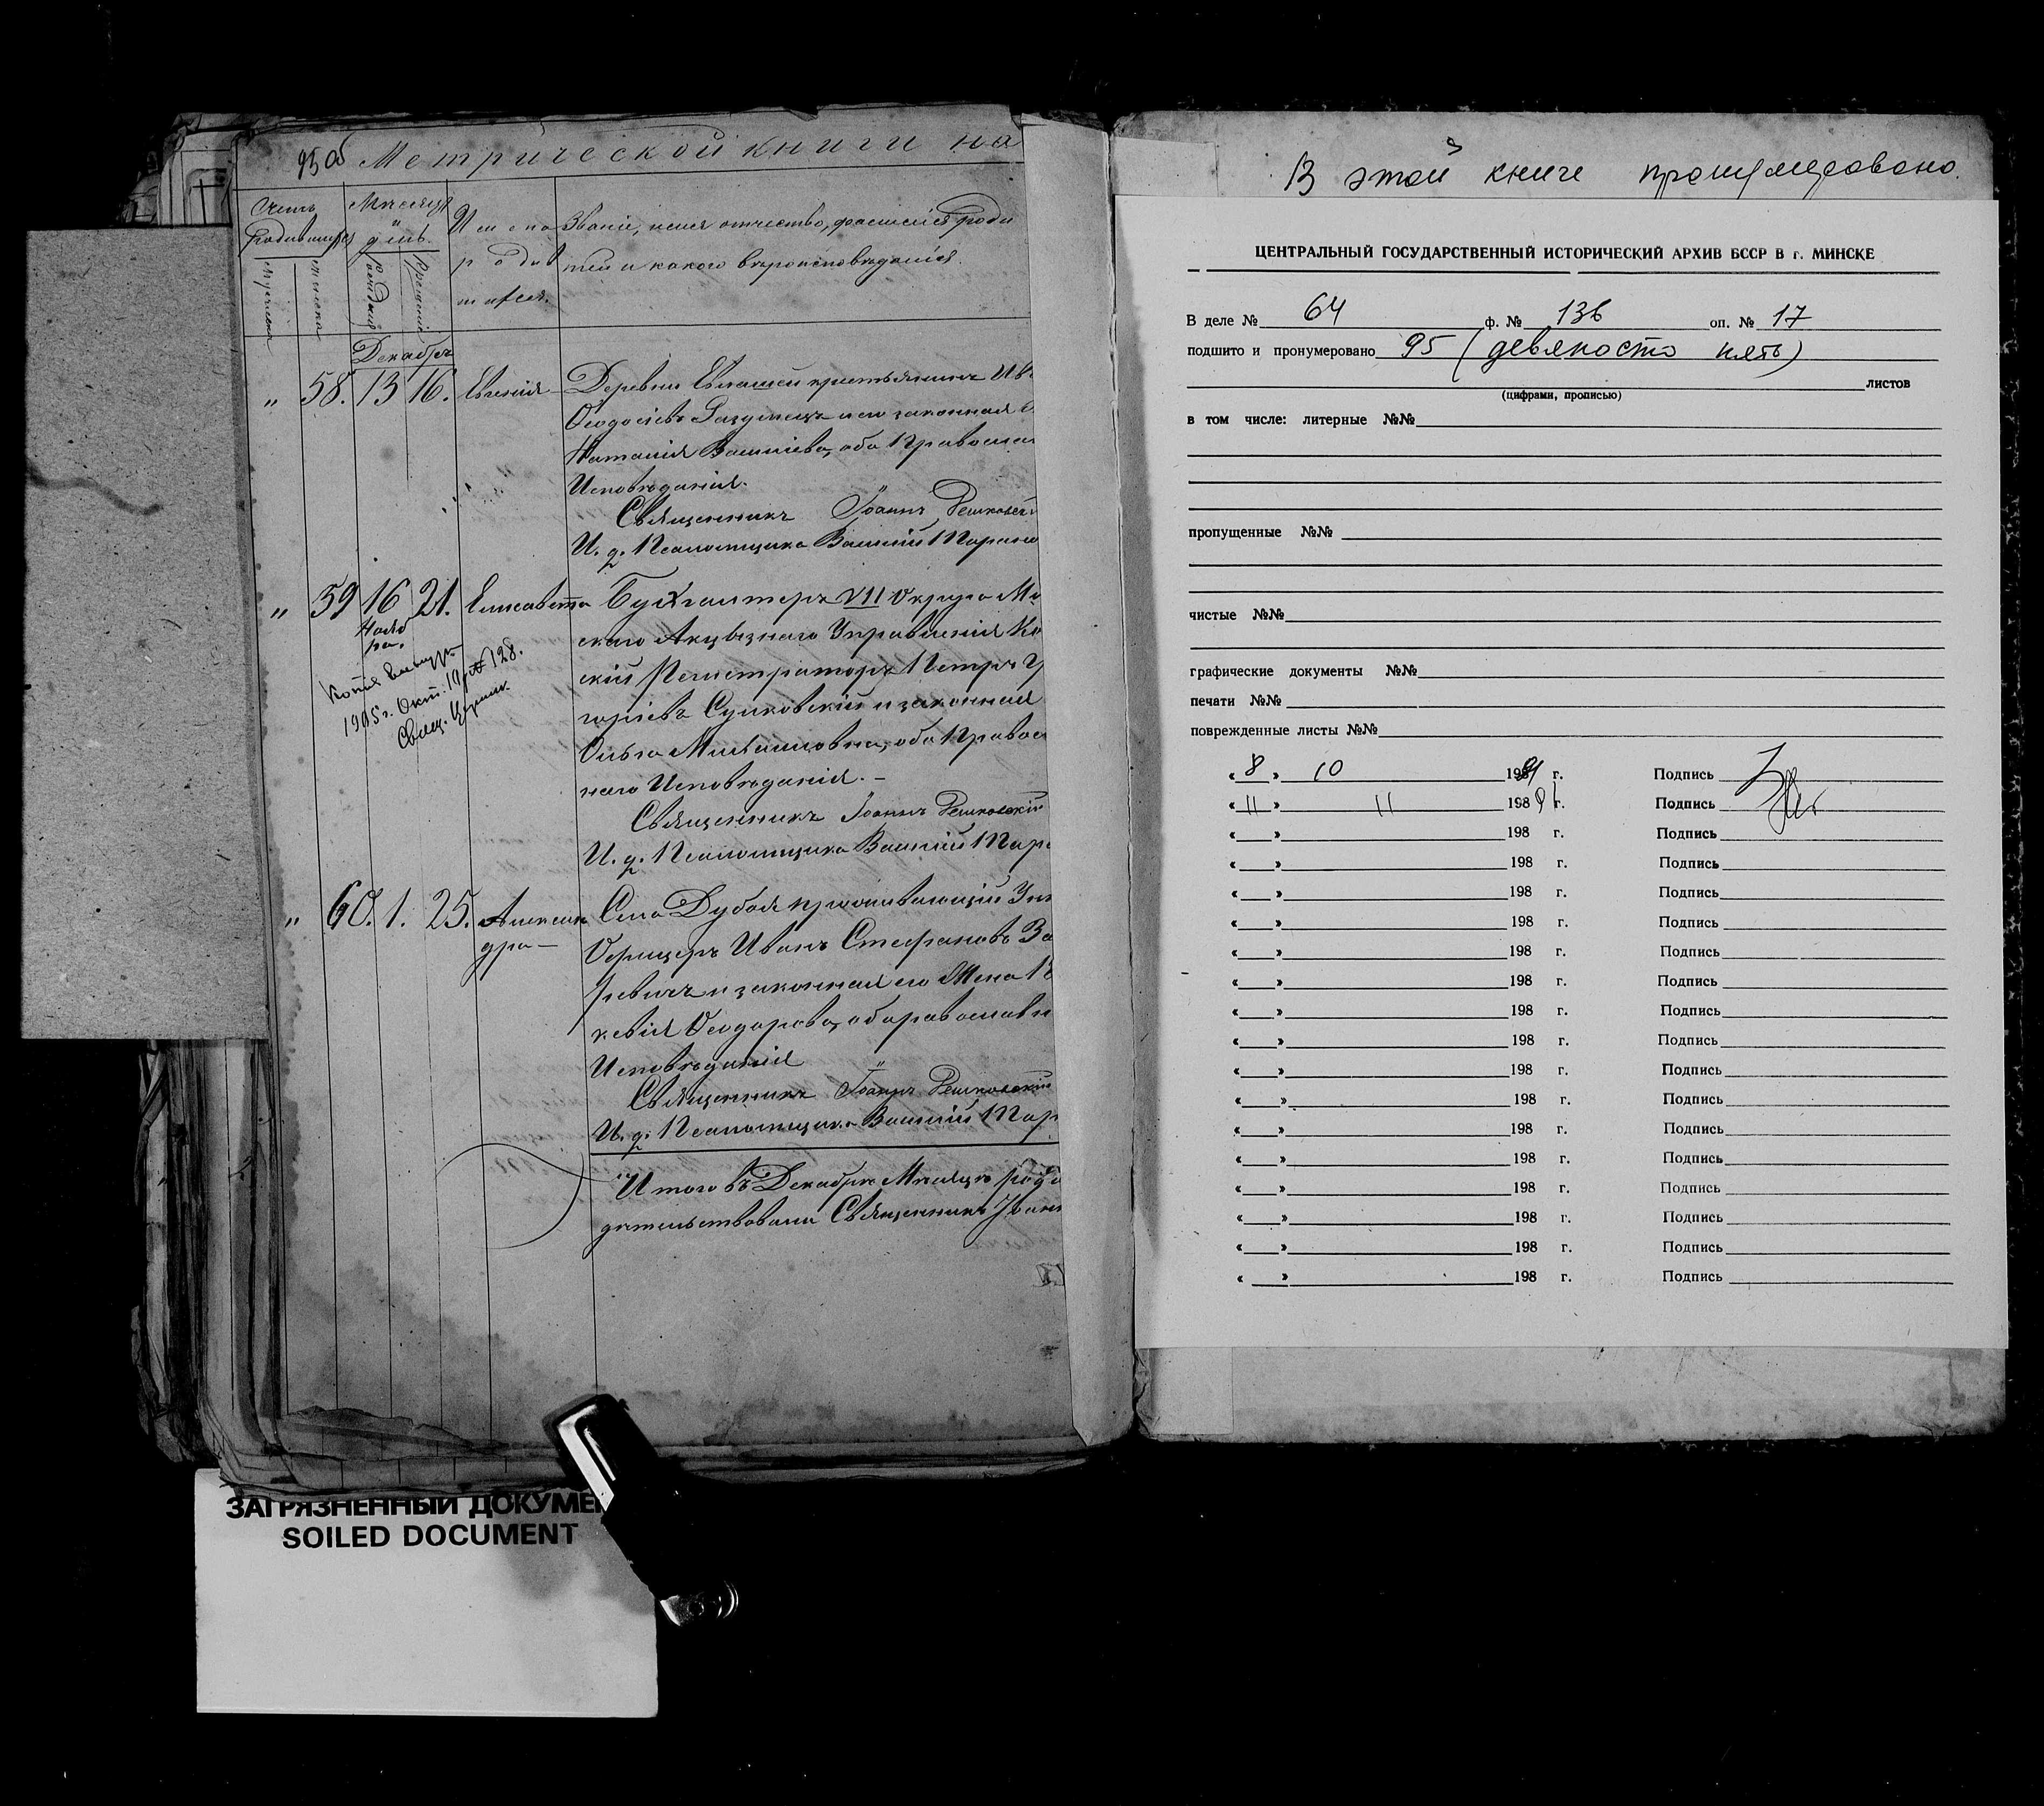 95об Метрической книги на
Счетъ родившихся
Мѣсяцъ и день
Имена родившихся.
Званіе, имя отчество, фамилія роди
телей и какого вѣроисповѣданія.
Мужеска
Женска
Рожденія
Крещенія
Декабрь
„ 58. 13 16. Евгенія
Деревни крестьянинъ Ив
Ѳеодосіевъ и его законная
Наталія Василіева, оба Православ
Исповѣданія.
Священникъ Іоаннъ Решковскі
И. д. Псаломщика Василій
„ 59 16 21. Елисавета
Нояб
ра.
Бухгалтеръ VII Округа Ми
скаго Акцызнаго Управленія Ко
скій Регистраторъ Петръ Гр
горіевъ Сулковскій и законная
Ольга Михаиловна, оба Правос
наго Исповѣданія. –
Копія выд
1905 г. Окт. 19 № 128.
Свящ.
Священникъ Іоаннъ Решковскій
И. д. Псаломщика Василій
„ 60. 1. 25. Алексан
дра –
Села Дубоя проживающій Ун
Офицеръ Иванъ Стефановъ За
ревичъ и законная его Жена
кевія Ѳеодорова, оба православн
Исповѣданія
Священникъ Іоаннъ Решковскій
И. д. Псаломщика Василій
Итого въ Декабрѣ Мѣсяцѣ род
дѣтельствовали Священникъ Іоанн
В этой книге пронумеровано
ЦЕНТРАЛЬНЫЙ ГОСУДАРСТВЕННЫЙ ИСТОРИЧЕСКИЙ АРХИВ БССР В г. МИНСКЕ
В деле № 64 ф. № 136 оп. № 17
подшито и пронумеровано 95 (девяносто пять)
листов
(цифрами, прописью)
в том числе: литерные №№
пропущенные №№
чистые №№
графические документы №№
печати №№
поврежденные листы №№
« 8 » 10 1991 г. Подпись
« 11 » 11 1989 г. Подпись
« » 198 г. Подпись
« » 198 г. Подпись
« » 198 г. Подпись
« » 198 г. Подпись
« » 198 г. Подпись
« » 198 г. Подпись
« » 198 г. Подпись
« » 198 г. Подпись
« » 198 г. Подпись
« » 198 г. Подпись
« » 198 г. Подпись
« » 198 г. Подпись
« » 198 г. Подпись
« » 198 г. Подпись
« » 198 г. Подпись
« » 198 г. Подпись
ЗАГРЯЗНЕННЫЙ ДОКУМЕН
SOILED DOCUMENT